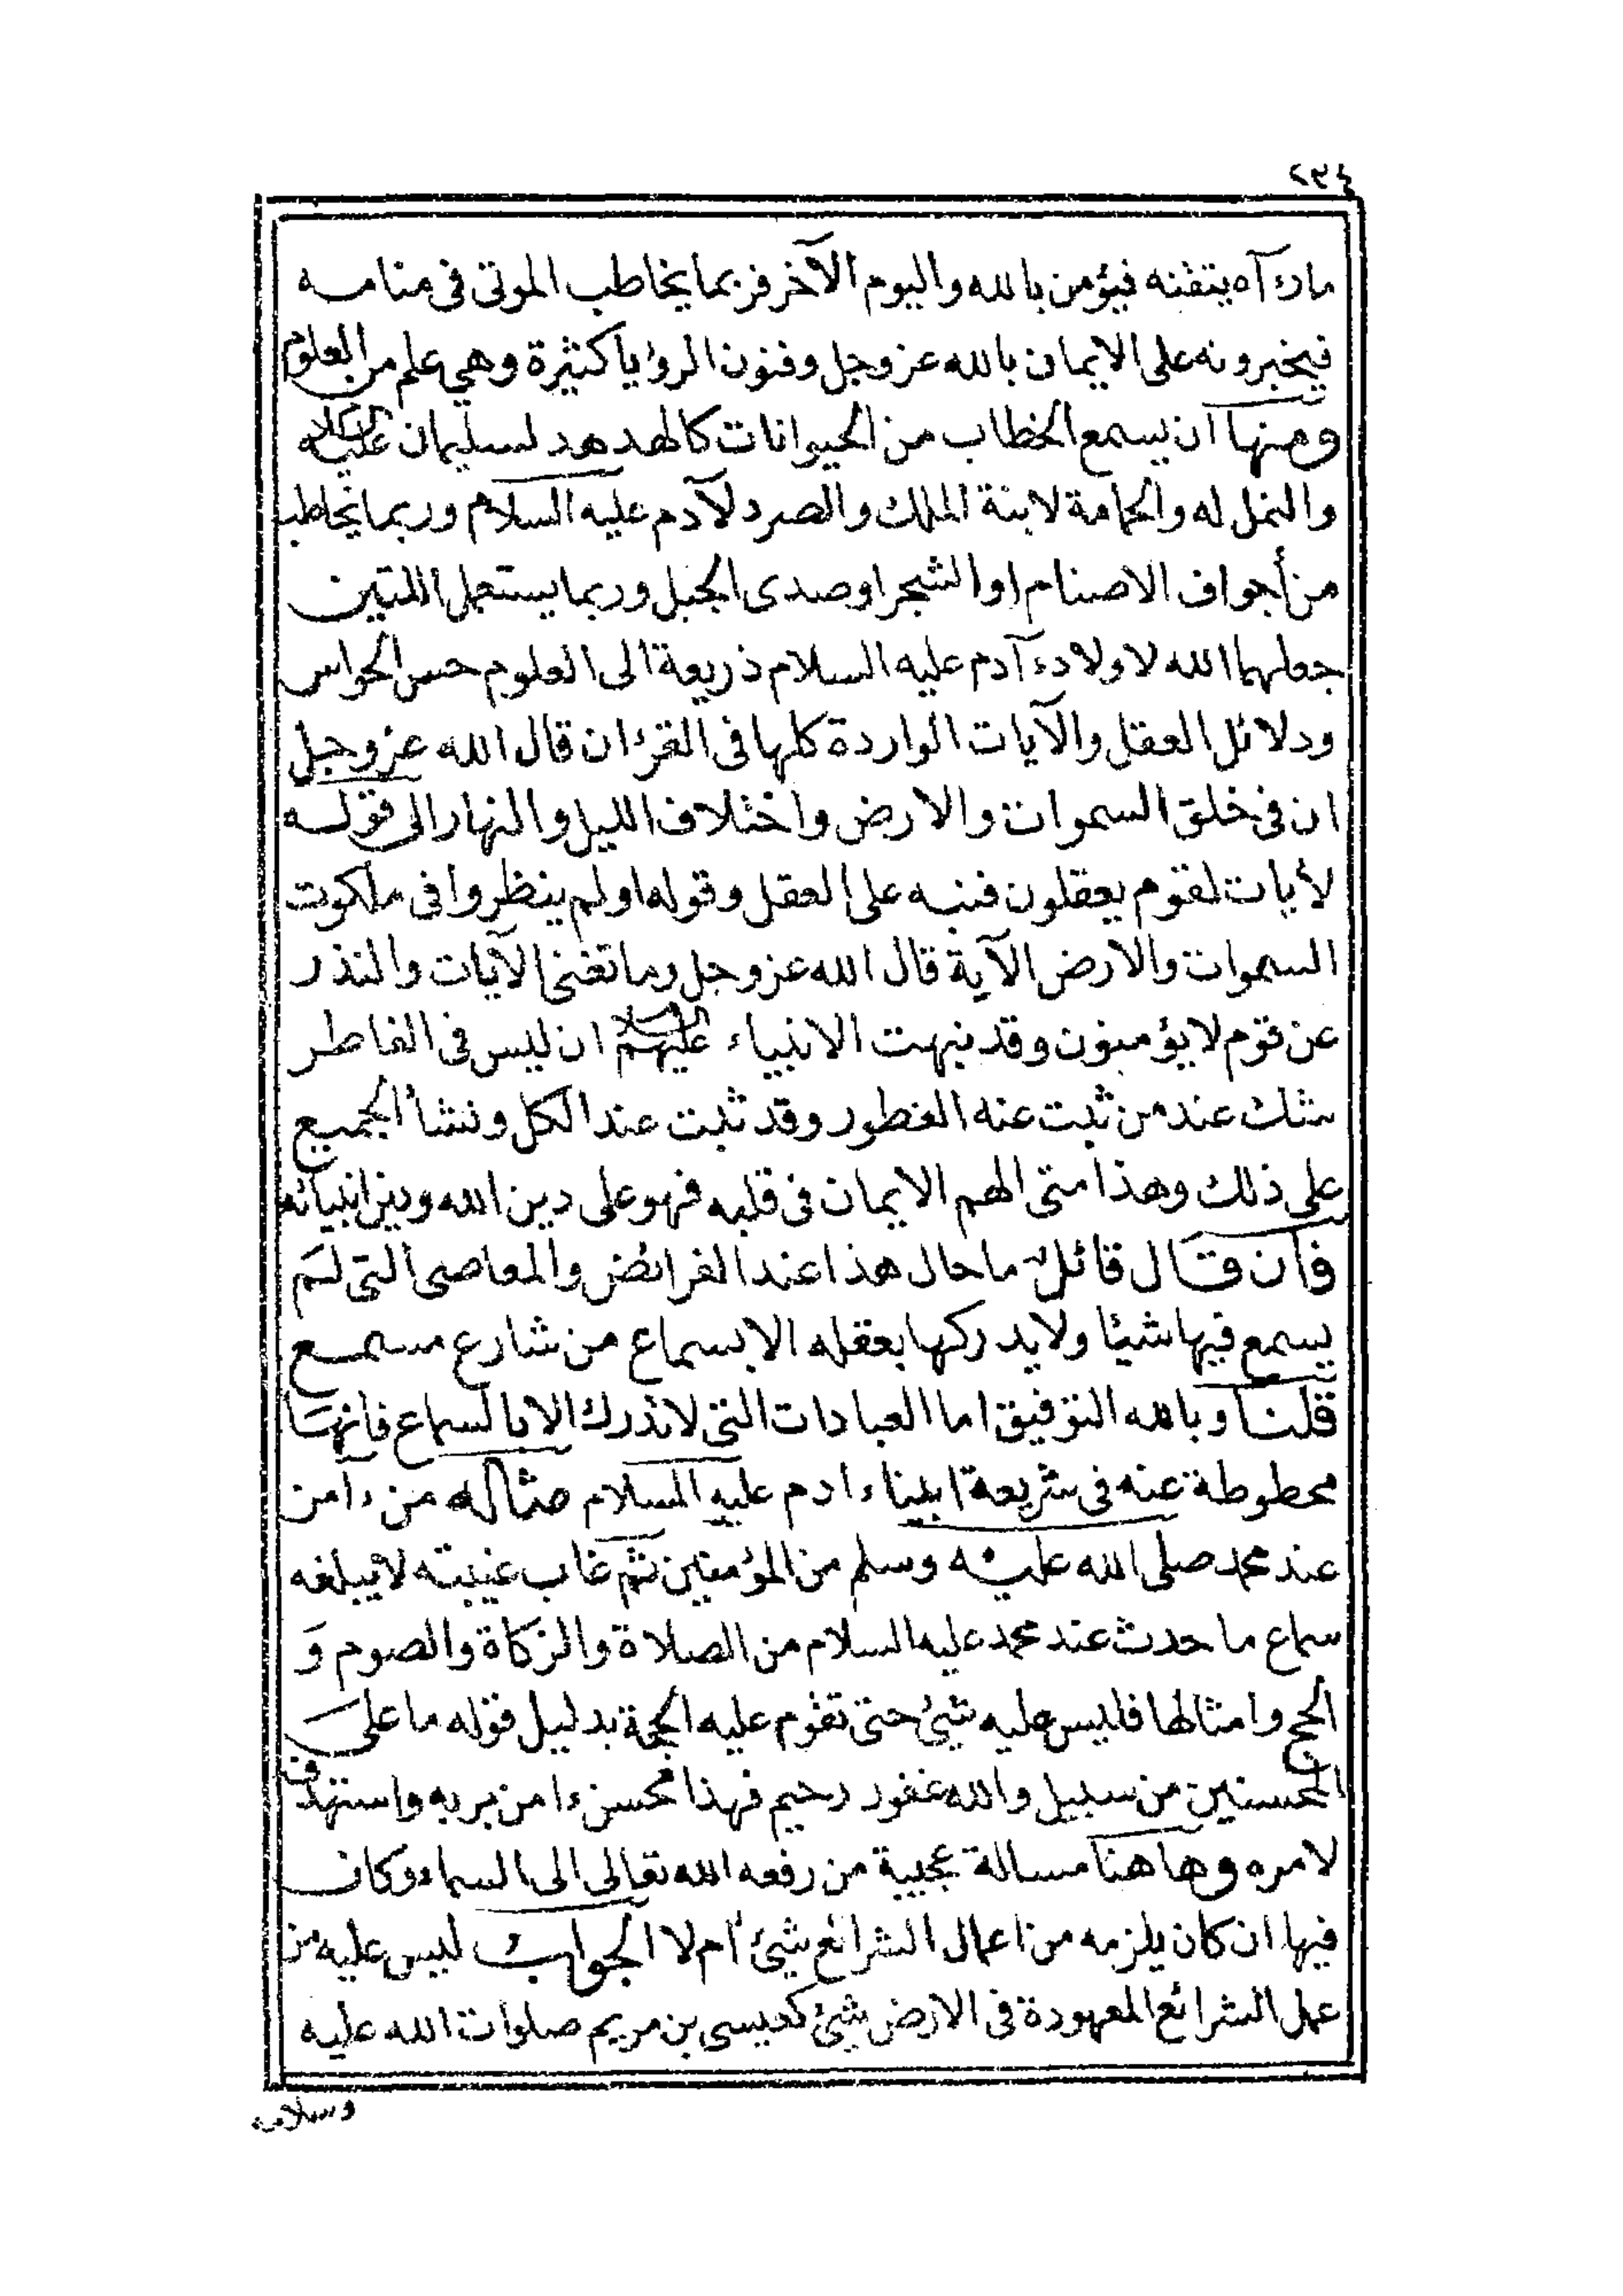 ٢٣٤
مارءآه يتقنه فيؤمن بالله واليوم الآخر فربما يخاطب الموتى فى منامه
فيخبرونه على الايمان بالله عز وجل وفنون الرؤيا كثيرة وهي علم من العلوم
ومنها ان يسمع الخطاب من الحيوانات كالهدهد لسليمان عليه السلام
والنمل له والحمامة لابنة الملك والصرد لآدم عليه السلام وربما يخاطب
من أجواف الاصنام او الشجر او صدى الجبل وربما يستعمل اللتين
جعلهما الله لاولادءآدم عليه السلام ذريعة الى العلوم حس الحواس
ودلائل العقل والآيات الواردة كلها فى القرءان قال الله عز وجل
ان فى خلق السموات والارض واختلاف الليل والنهار الى قوله
لأيات لقوم يعقلون فنبه على العقل وقوله اولم ينظروا فى ملكوت
السموات والارض الآية قال الله عز وجل وما تغنى الآيات والنذر
عن قوم لا يؤمنون وقد نبهت الانبياء عليهم السلام ان ليس فى الفاطر
شك عند من ثبت عنه الفطور وقد ثبت عند الكل ونشأ الجميع
على ذلك وهذا متى الهم الايمان فى قلبه فهو على دين الله ودين انبيائه
فان قال قائل ما حال هذا عند الفرائض والمعاصى التى لم
يسمع فيها شيئا ولا يدركها بعقله الا بسماع من شارع مسمع
قلنا وبالله التوفيق اما العبادات التى لا تدرك الا بالسماع فانها
محطوطة عنه فى شريعة ابيناءادم عليه السلام مثاله من ءامن
عند محمد صلى الله عليه وسلم من المؤمنين ثم غاب غيبته لا يبلغه
سماع ما حدث عند محمد عليه السلام من الصلاة والزكاة والصوم وَ
الحج وامثالها فليس عليه شيئ حتى تقوم عليه الحجة بدليل قوله ما على
المحسنين من سبيل والله غفور رحيم فهذا محسن ءامن بربه واستهدف
لامره وها هنا مسالة عجيبة من رفعه الله تعالى الى السماء وكان
فيها ان كان يلزمه من اعمال الشرائع شيئ أم لا الجواب ليس عليه من
عمل الشرائع المعهودة فى الارض شيئ كعيسى بن مريم صلوات الله عليه
وسلامه